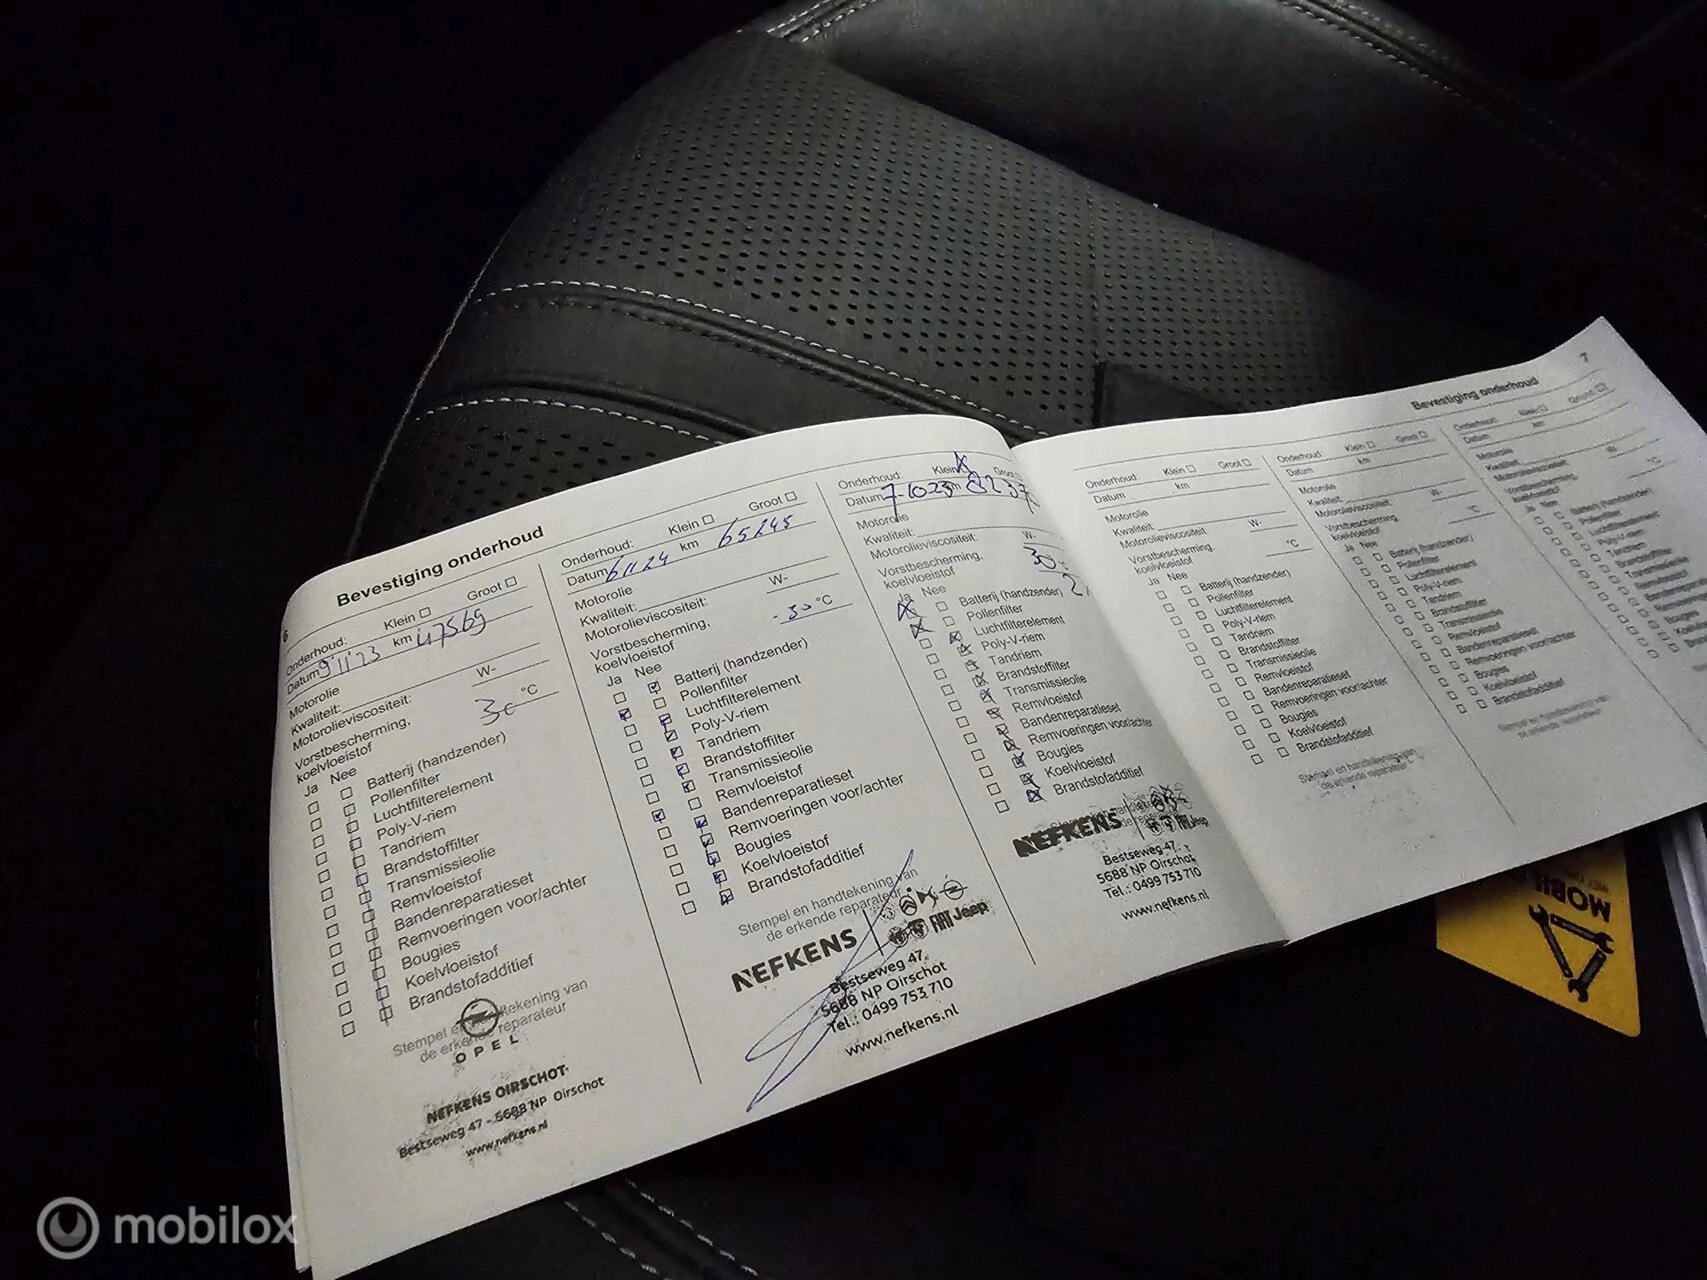 6
Bevestiging onderhoud
Onderhoud: Klein Groot
Datum 9 11 23 km 47569
Motorolie
Kwaliteit:
Motorolieviscositeit: W-
Vorstbescherming, °C
koelvloeistof
Ja Nee
Batterij (handzender)
Pollenfilter
Luchtfilterelement
Poly-V-riem
Tandriem
Brandstoffilter
Transmissieolie
Remvloeistof
Bandenreparatieset
Remvoeringen voor/achter
Bougies
Koelvloeistof
Brandstofadditief
Stempel en handtekening van
de erkende reparateur
OPEL
NEFKENS OIRSCHOT
Bestseweg 47 - 5688 NP Oirschot
www.nefkens.nl
Onderhoud: Klein Groot
Datum 6 11 24 km 65245
Motorolie
Kwaliteit:
Motorolieviscositeit: W-
Vorstbescherming, -30 °C
koelvloeistof
Ja Nee
Batterij (handzender)
Pollenfilter
Luchtfilterelement
Poly-V-riem
Tandriem
Brandstoffilter
Transmissieolie
Remvloeistof
Bandenreparatieset
Remvoeringen voor/achter
Bougies
Koelvloeistof
Brandstofadditief
Stempel en handtekening van
de erkende reparateur
NEFKENS FIAT Jeep
Bestseweg 47
5688 NP Oirschot
Tel.: 0499 753 710
www.nefkens.nl
Onderhoud: Klein Groot
Datum km
Motorolie
Kwaliteit:
Motorolieviscositeit: W-
Vorstbescherming, 30
koelvloeistof
Ja Nee
Batterij (handzender)
Pollenfilter
Luchtfilterelement
Poly-V-riem
Tandriem
Brandstoffilter
Transmissieolie
Remvloeistof
Bandenreparatieset
Remvoeringen voor/achter
Bougies
Koelvloeistof
Brandstofadditief
NEFKENS FIAT Jeep
Bestseweg 47
5688 NP Oirschot
Tel.: 0499 753 710
www.nefkens.nl
7
Bevestiging onderhoud
Onderhoud: Klein Groot
Datum km
Motorolie
Kwaliteit:
Motorolieviscositeit: W-
Vorstbescherming, °C
koelvloeistof
Ja Nee
Batterij (handzender)
Pollenfilter
Luchtfilterelement
Poly-V-riem
Tandriem
Brandstoffilter
Transmissieolie
Remvloeistof
Bandenreparatieset
Remvoeringen voor/achter
Bougies
Koelvloeistof
Brandstofadditief
Stempel en handtekening van
de erkende reparateur
Onderhoud: Klein Groot
Datum km
Motorolie
Kwaliteit:
Motorolieviscositeit: W-
Vorstbescherming, °C
koelvloeistof
Ja Nee
Batterij (handzender)
Pollenfilter
Luchtfilterelement
Poly-V-riem
Tandriem
Brandstoffilter
Transmissieolie
Remvloeistof
Bandenreparatieset
Remvoeringen voor/achter
Bougies
Koelvloeistof
Brandstofadditief
Stempel en handtekening van
de erkende reparateur
Onderhoud: Klein Groot
Datum km
Motorolie
mobilox